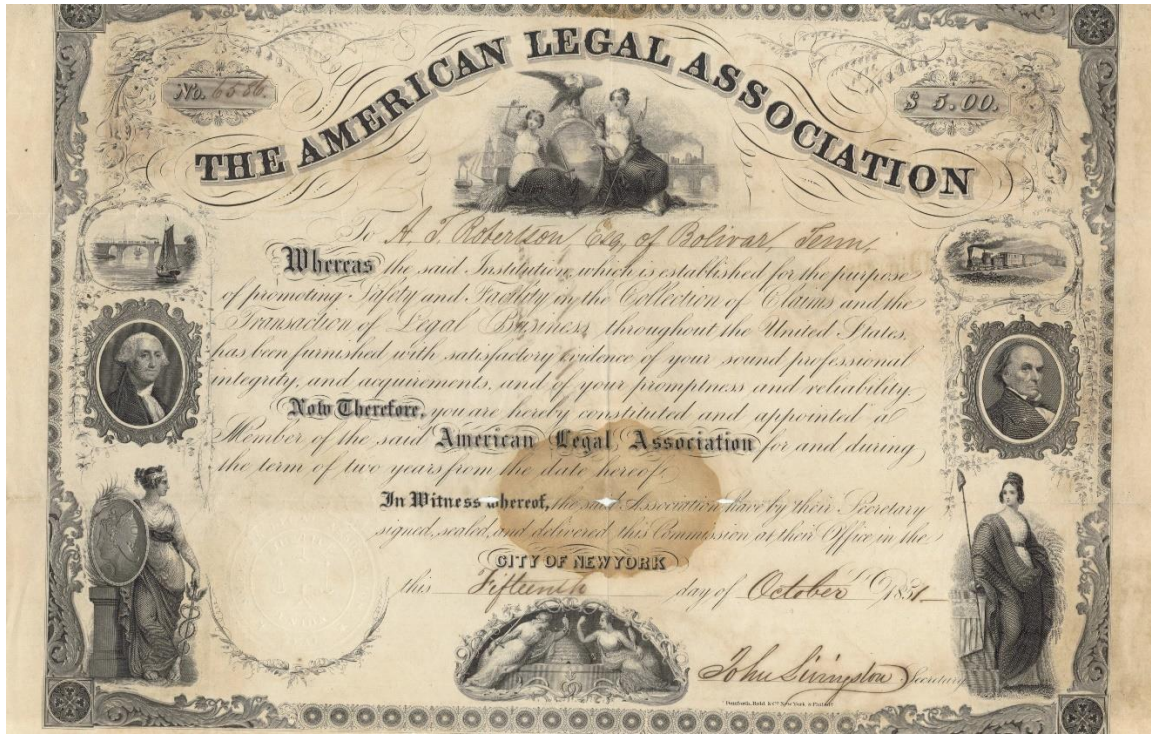 THE AMERICAN LEGAL ASSOCIATION
No. 6586.
$ 5.00.
To A. J. Robertson, Esq, of Bolivar, Tenn,
Whereas the said Institution, which is established for the purpose
of promoting Safety and Facility in the Collection of Claims and the
Transaction of Legal Business, throughout the United States,
has been furnished with satisfactory evidence of your sound professional
integrity, and acquirements, and of your promptness and reliability,
Now Therefore, you are hereby constituted and appointed a
Member of the said American Legal Association for and during
the term of two years from the date hereof.
In Witness whereof, the said Association have by their Secretary
signed, sealed, and delivered this Commission at their Office, in the
CITY OF NEW YORK
this Fifteenth day of October 1851
John Livingston Secretary
Danforth, Bald & Co. New York & Philada.